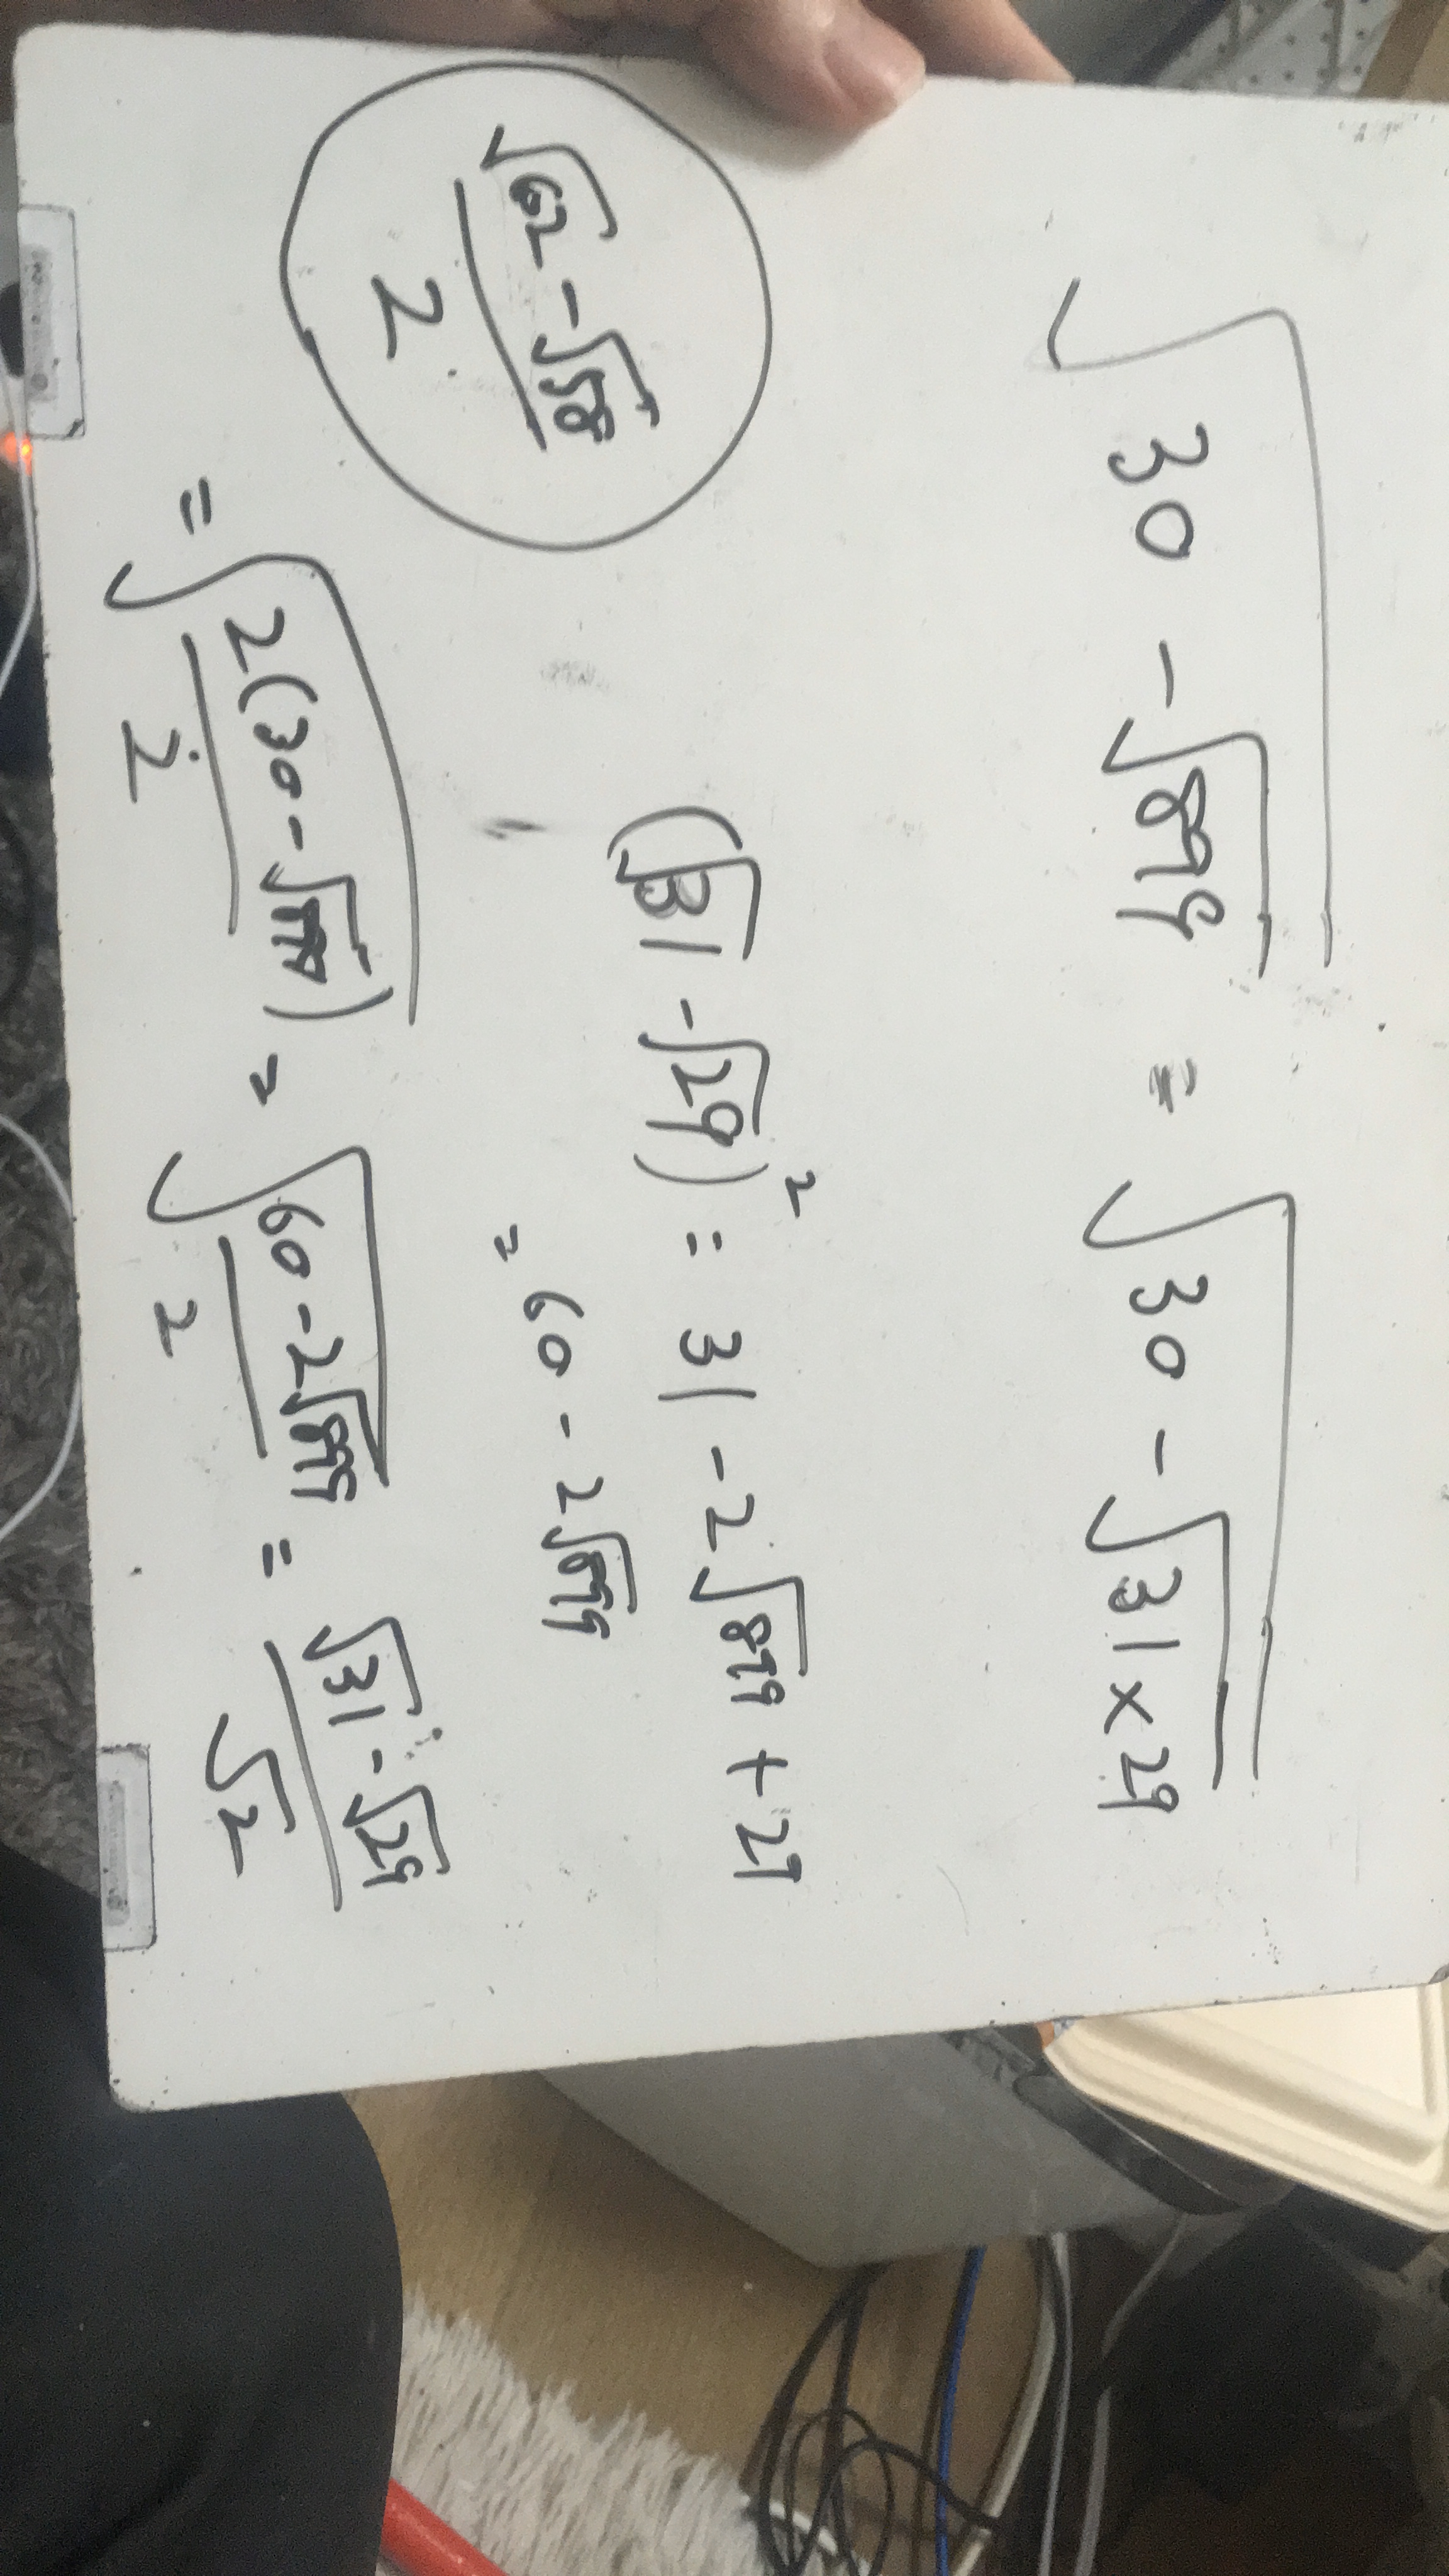 √(30 - √899) = √(30 - √(31 × 29))
(√31 - √29)² = 31 - 2√899 + 29
= 60 - 2√899
= √(2(30 - √899)/2) = √((60 - 2√899)/2) = (√31 - √29)/√2
(√62 - √58)/2